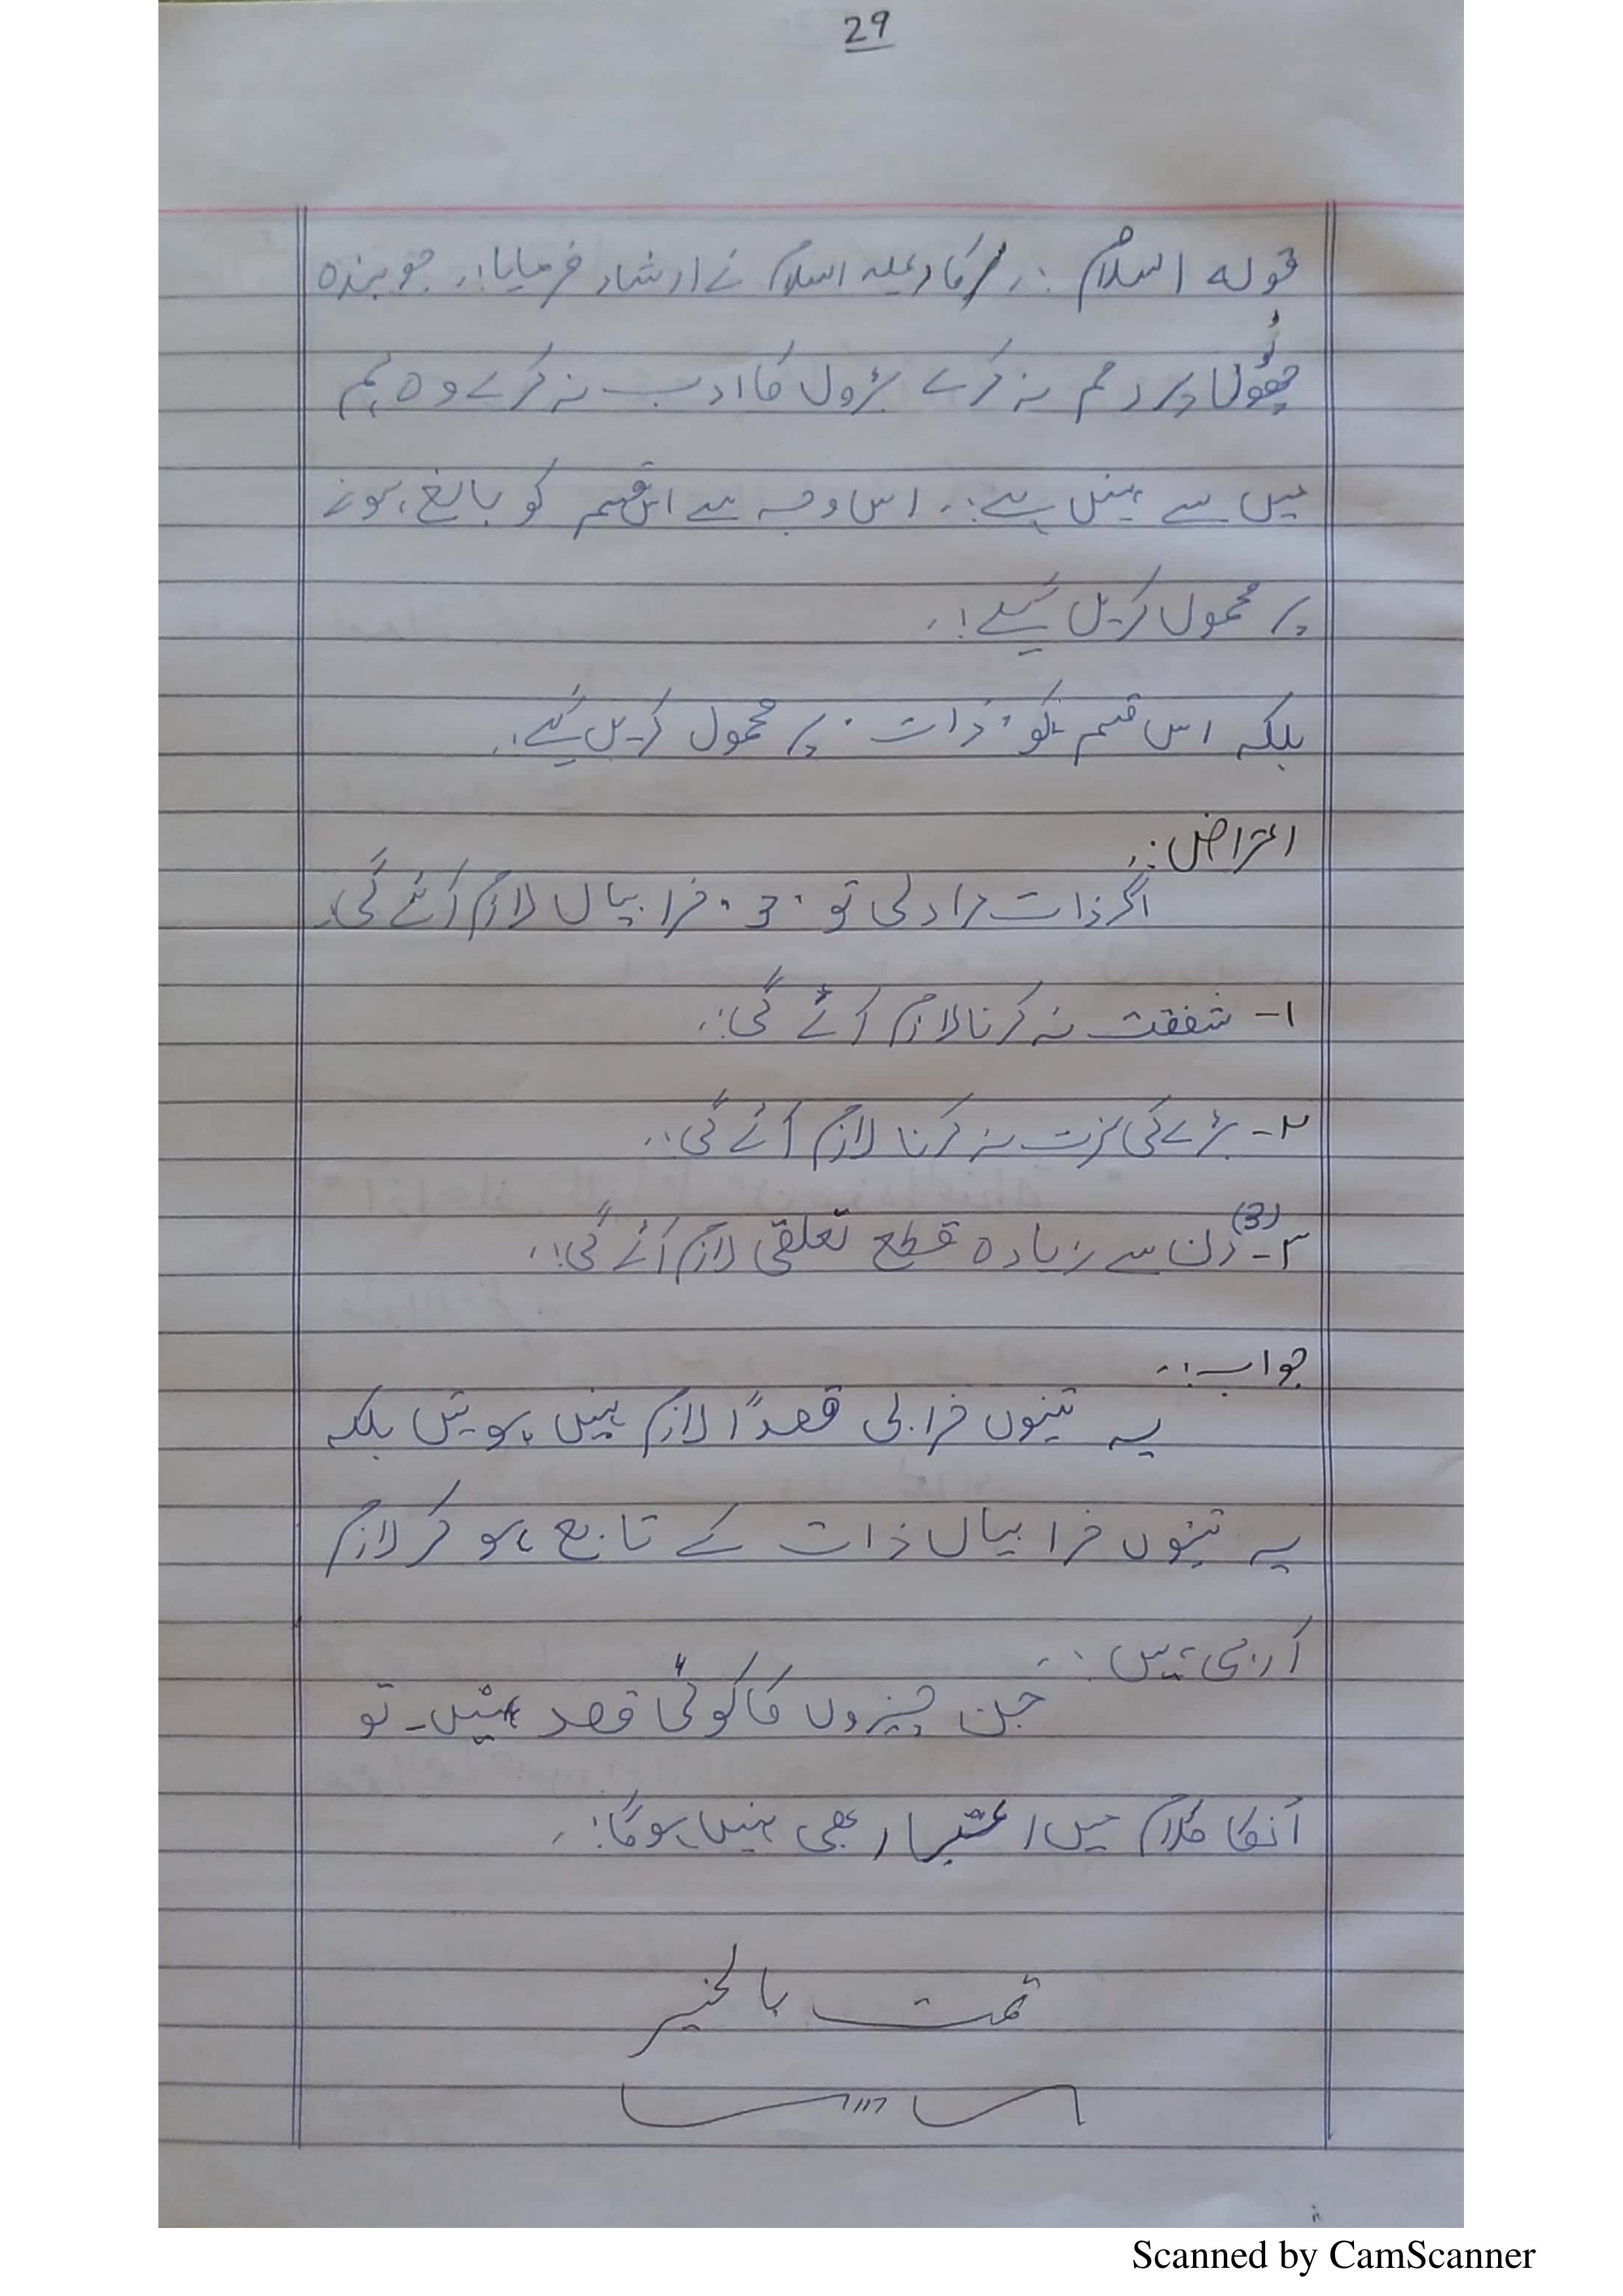 29
قولہ اسلام :. سرکار علیہ اسلام نے ارشاد فرمایا:. جو بندہ
چھوٹوں پر رحم نہ کرے بڑوں کا ادب نہ کرے وہ ہم
میں سے نہیں ہے:. اس وجہ سے اس قسم کو بالغ ہونے
پر محمول کریں گے:.
بلکہ اس قسم کو "ذات" پر محمول کریں گے:.
اعتراض:.
اگر ذات مراد لی تو "3" خرابیاں لازم آئے گی۔
۱- شفقت نہ کرنا لازم آئے گی:.
۲- بڑے کی عزت نہ کرنا لازم آئے گی:.
۳- (3) دن سے زیادہ قطع تعلقی لازم آئے گی:.
جواب:.
یہ تینوں خرابی قصدًا لازم نہیں ہوئیں بلکہ
یہ تینوں خرابیاں ذات کے تابع ہو کر لازم
آرہی ہیں:.
جن چیزوں کا کوئی قصد نہیں۔ تو
اُنکا کلام میں اعتبار بھی نہیں ہوگا:.
تمت بالخیر
Scanned by CamScanner